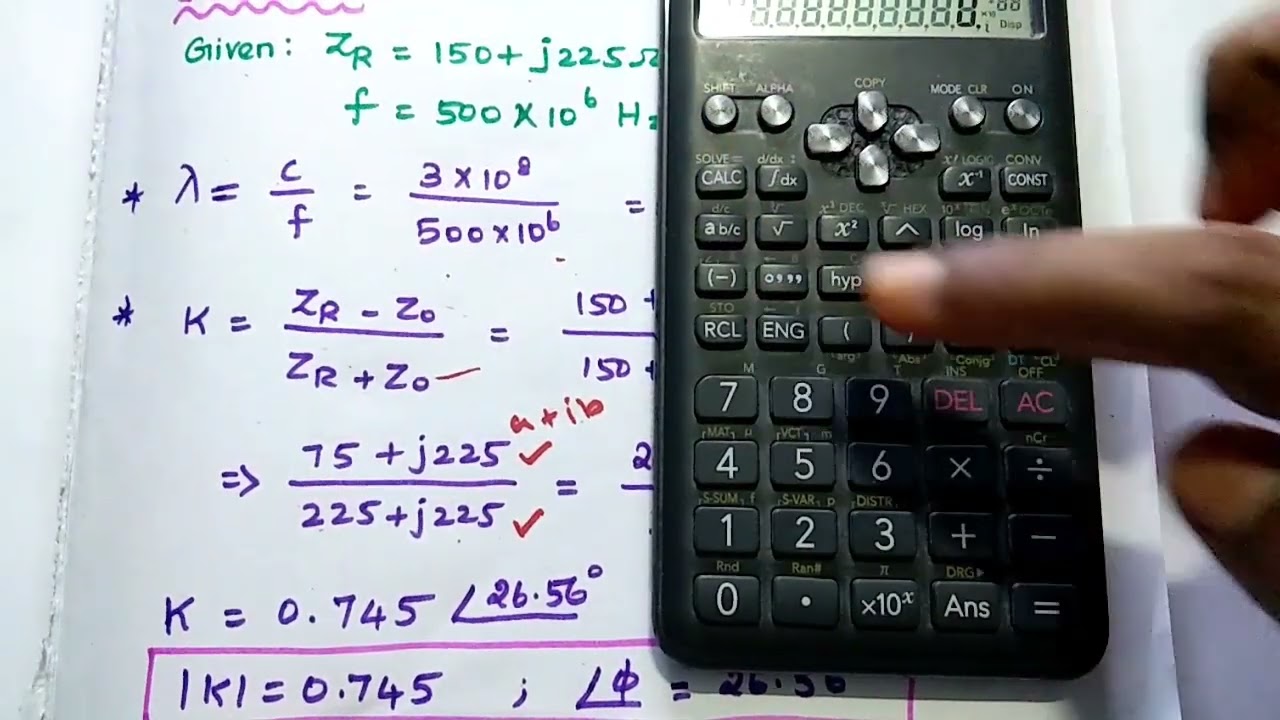 Given: ZR = 150 + j225Ω
f = 500 × 10⁶ Hz
* λ = c/f = 3 × 10⁸/500 × 10⁶ =
* K = ZR - Z0/ZR + Z0 = 150 +/150 +
a + ib
=> 75 + j225/225 + j225 = 2
K = 0.745 ∠26.56°
|K| = 0.745 ; ∠ϕ = 26.56
Disp
COPY
SHIFT ALPHA MODE CLR ON
SOLVE = d/dx : x! LOGIC CONV
CALC ∫dx x⁻¹ CONST
d/c x³ DEC HEX 10ˣ
a b/c √ x² ^ log ln
(-) 0,,, hyp
STO
RCL ENG (
arg Abs Conjg DT CL
M G T INS OFF
7 8 9 DEL AC
MAT μ VCT m nCr
4 5 6 × ÷
S-SUM f S-VAR p DISTR
1 2 3 + −
Rnd Ran# π DRG▶
0 · ×10ˣ Ans =